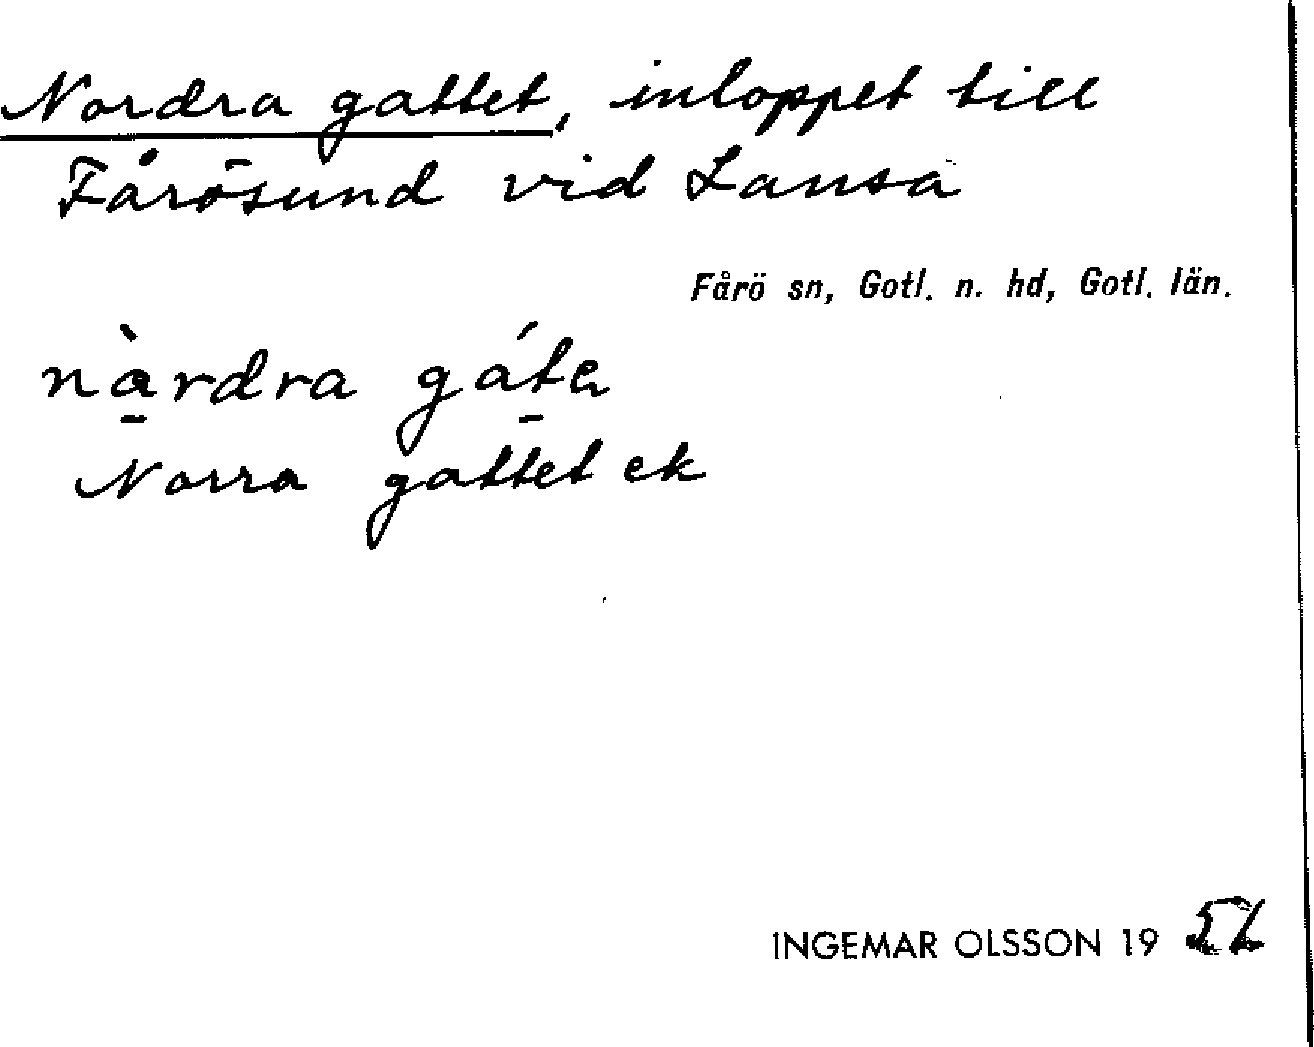 Nordra gattet, inloppet till
Fårösund vid Lansa
Fårö sn, Gotl. n. hd, Gotl. län.
nàrdra gátę
Norra gattet ek
INGEMAR OLSSON 19